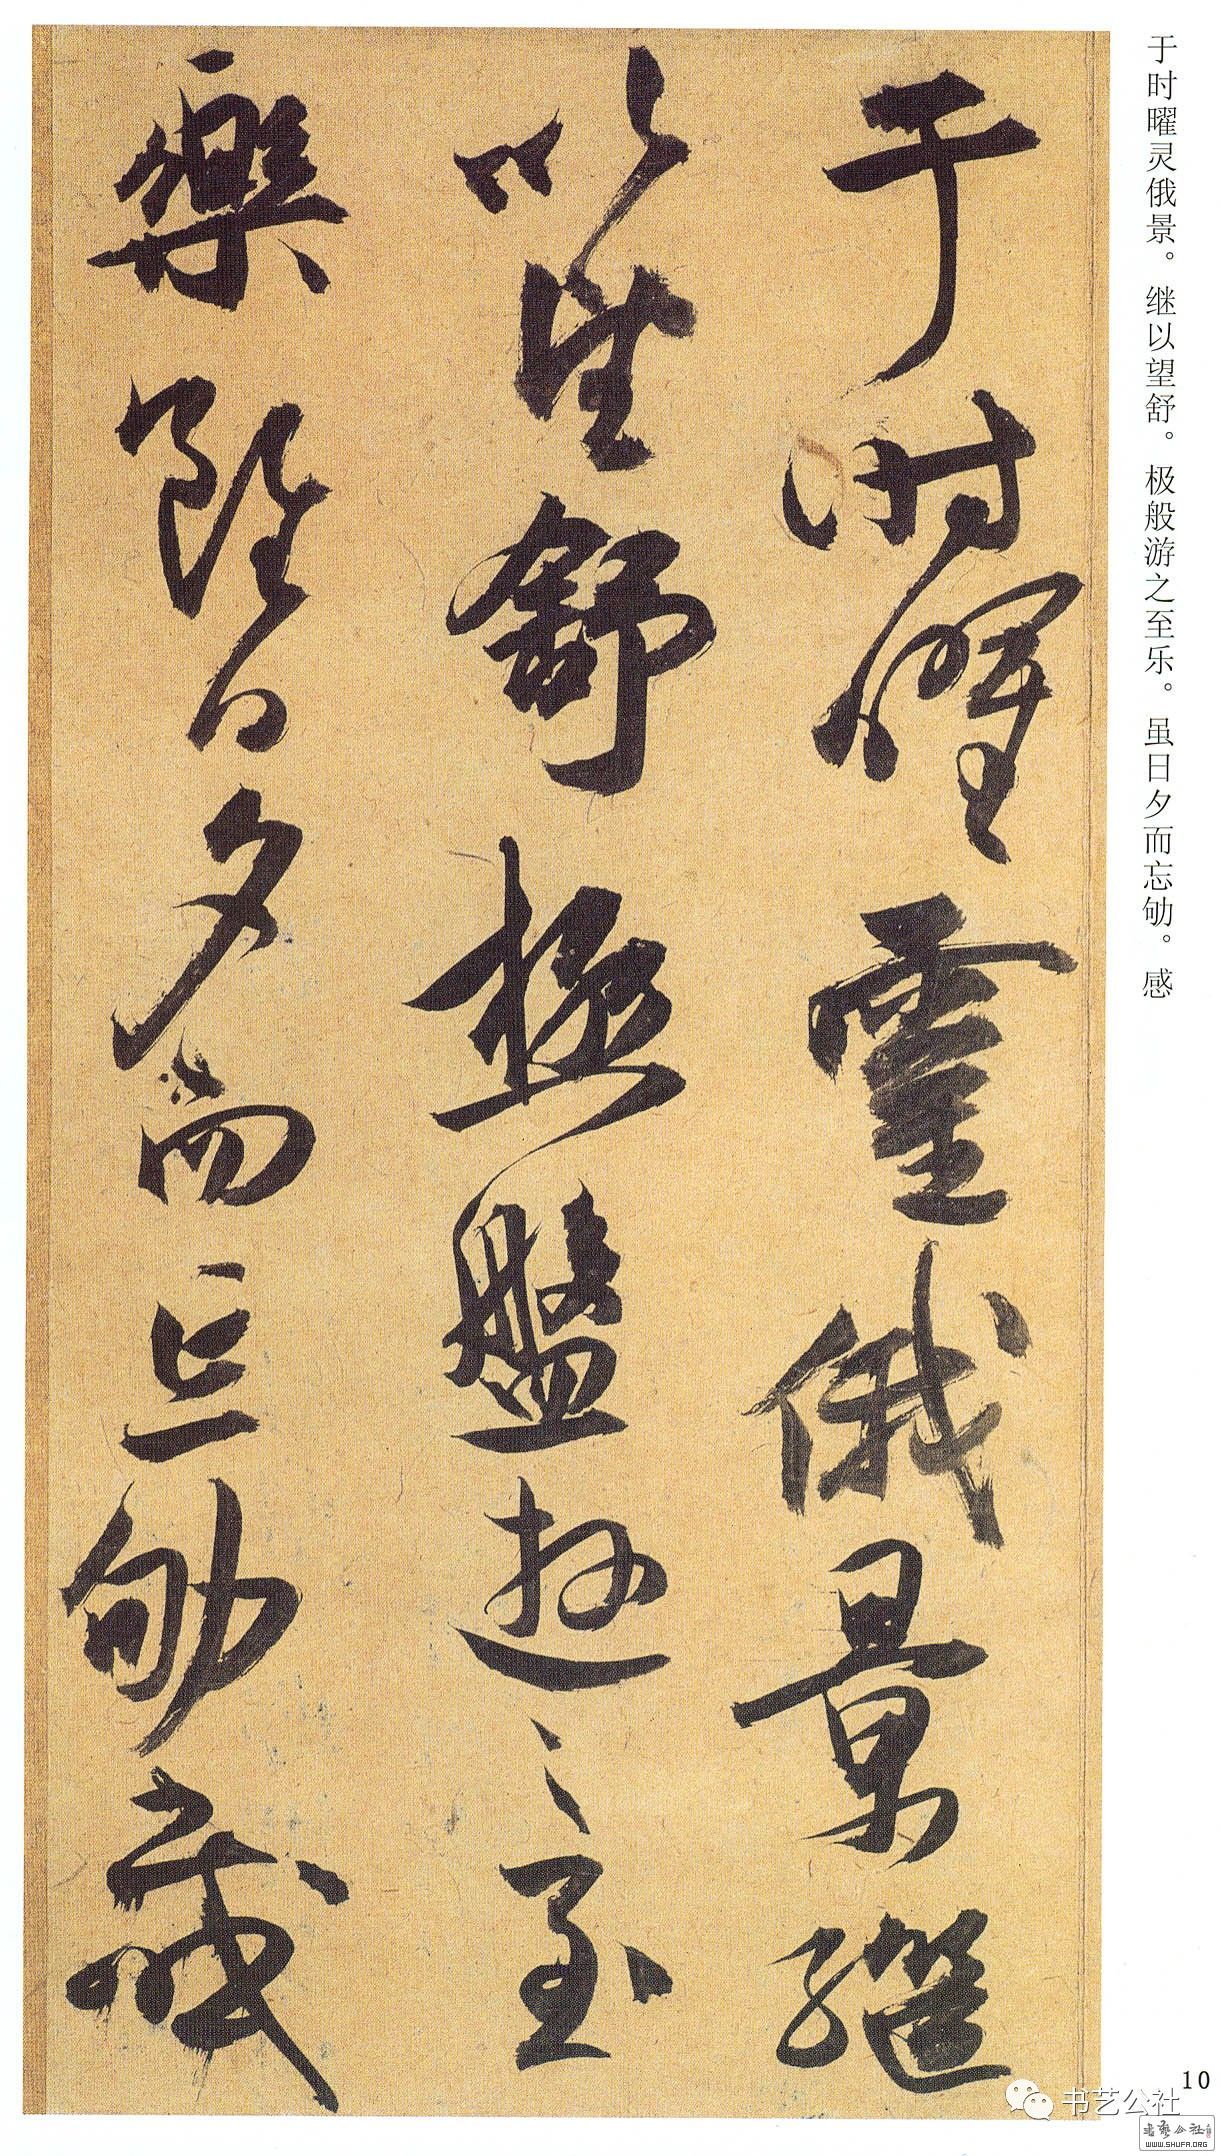 于时曜灵俄景。继以望舒。极般游之至乐。虽日夕而忘劬。感
于時曜靈俄景繼
以望舒極盤遊之至
樂雖日夕而忘劬感
10
书艺公社
书艺公社
WWW.SHUFA.ORG